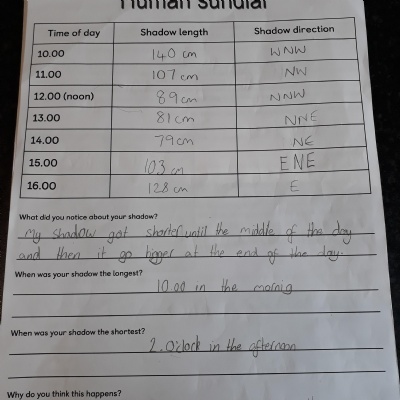 Human sundial
Time of day Shadow length Shadow direction
10.00 140 cm WNW
11.00 107 cm NW
12.00 (noon) 89cm NNW
13.00 81cm NNE
14.00 79cm NE
15.00 103 cm ENE
16.00 128 cm E
What did you notice about your shadow?
My shadow got shorter until the middle of the day
and then it go bigger at the end of the day.
When was your shadow the longest?
10.00 in the mornig
When was your shadow the shortest?
2.O'clock in the afternoon
Why do you think this happens?